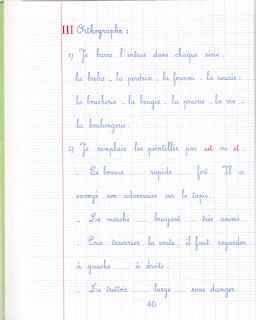 III Orthographe :
1) Je barre l'intrus dans chaque série.
la brebis - la perdrix - la fourmi - la souris :
la boucherie - la bougie - la prairie - la vie -
la boulangerie.
2) Je remplace les pointillés par est ou et.
- Ce boxeur ...... rapide ...... fort. Il a
envoyé son adversaire sur le tapis.
- Le marché ...... bruyant ...... très animé.
- Pour traverser la route, il faut regarder
à gauche ...... à droite.
- Le trottoir ...... large ...... sans danger
40